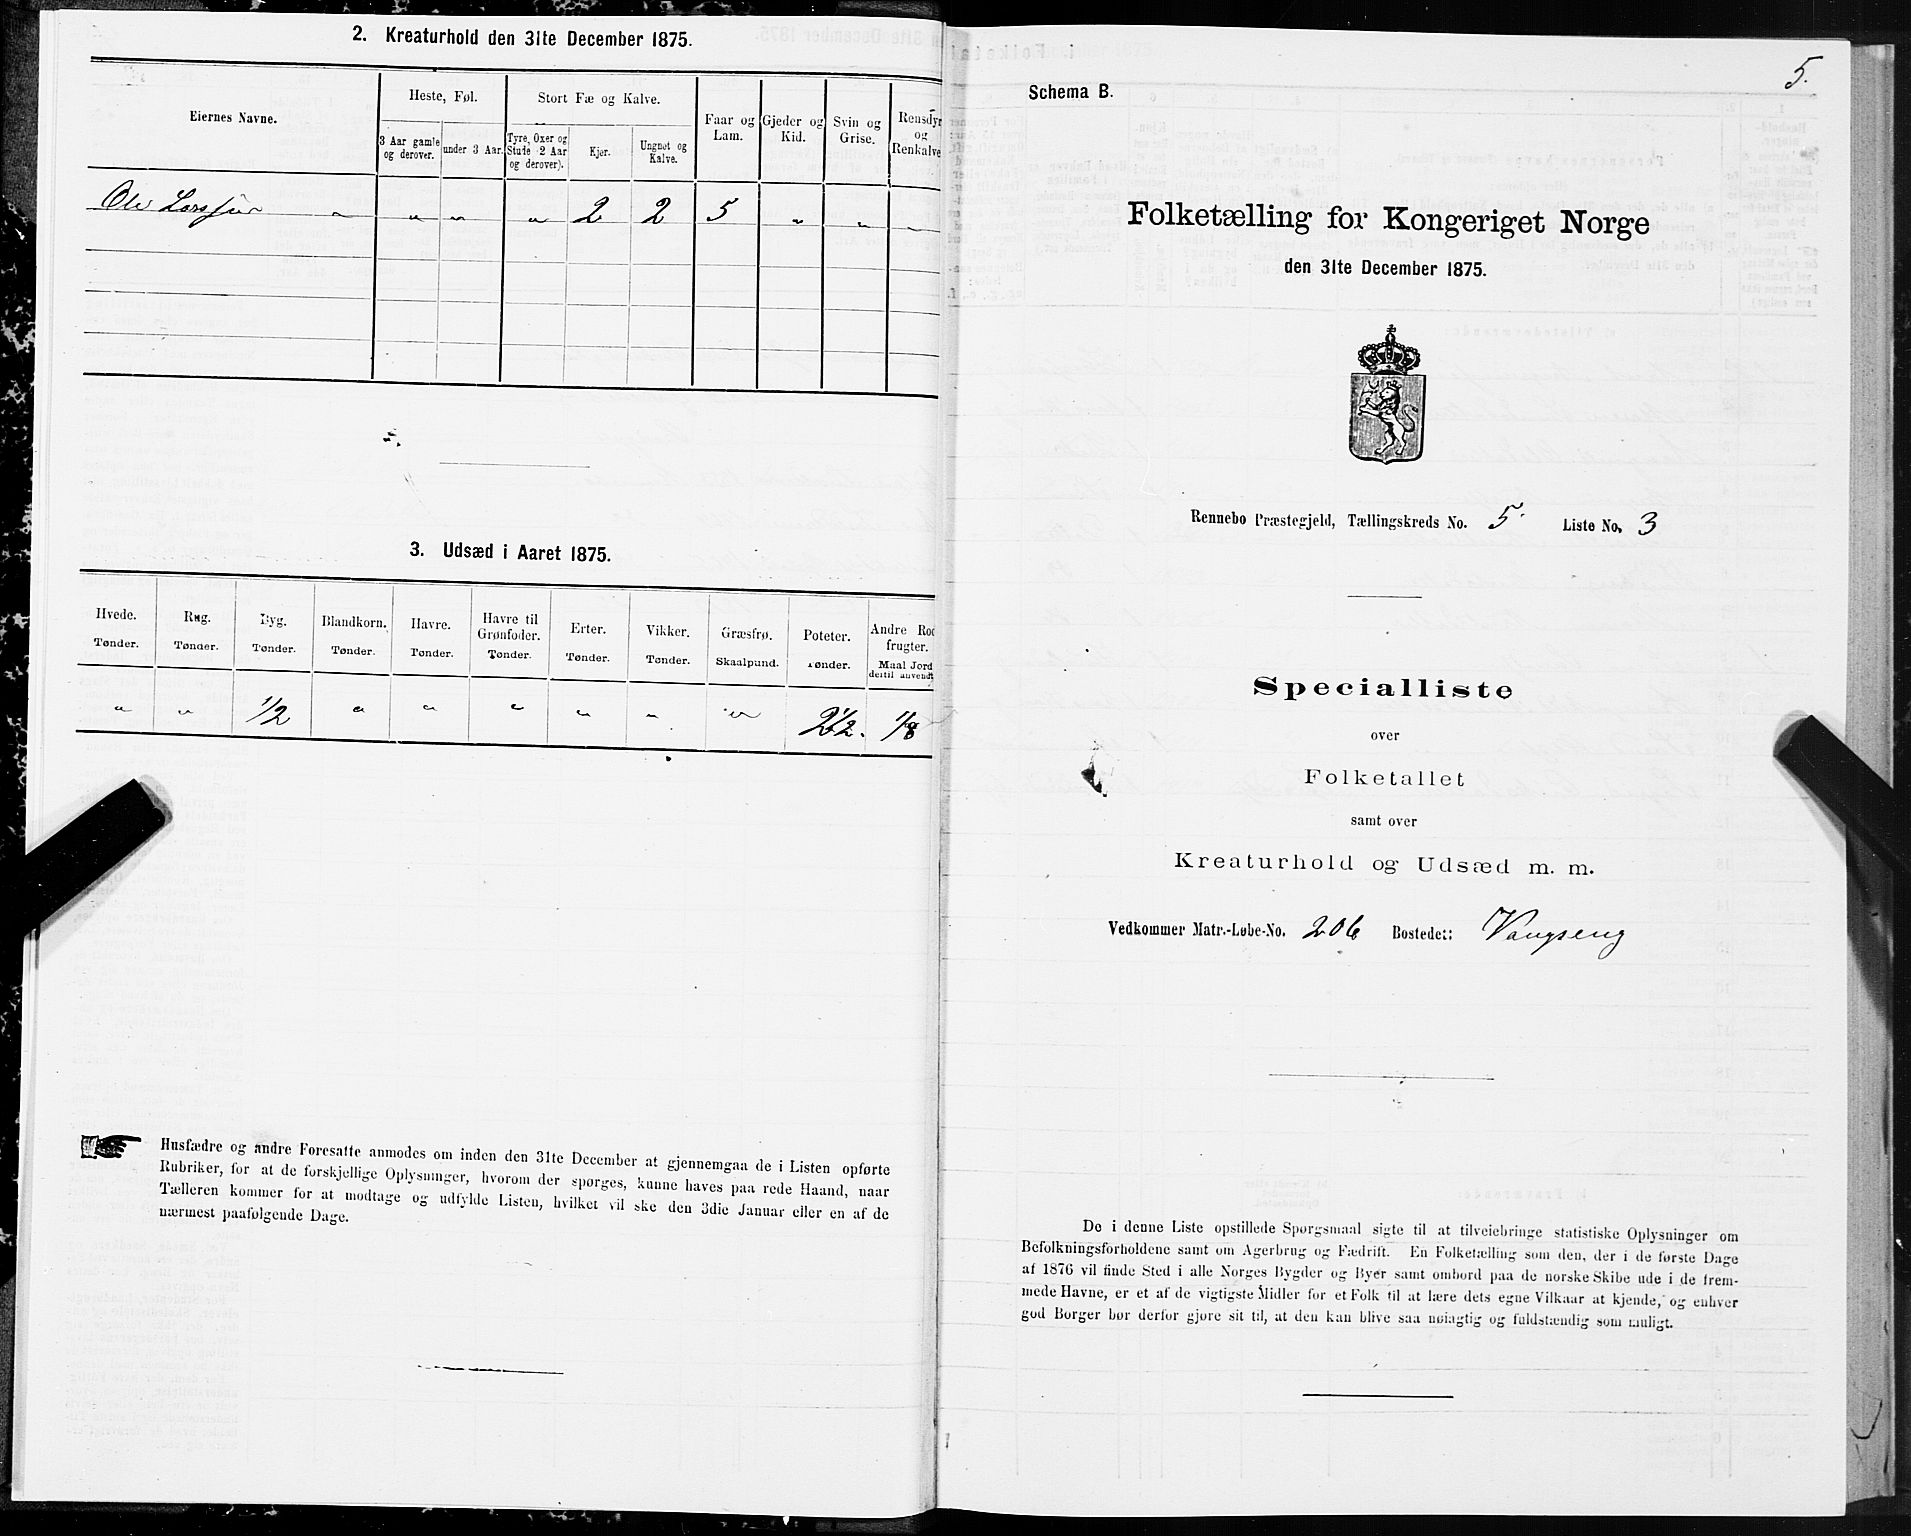 2. Kreaturhold den 31te December 1875.
Eiernes Navne.
Heste, Føl.
Stort Fæ og Kalve.
Faar og Lam.
Gjeder og Kid.
Svin og Grise.
Rensdyr og Renkalve
3 Aar gamle og derover.
under 3 Aar.
Tyre, Oxer og Stude (2 Aar og derover).
Kjør.
Ungnøt og Kalve.
Ole " " " " 2 2 5 " " "
3. Udsæd i Aaret 1875.
Hvede. Rug. Byg. Blandkorn. Havre. Havre til Grønfoder. Erter. Vikker. Græsfrø. Poteter. Andre Rodfrugter.
Tønder. Tønder. Tønder. Tønder. Tønder. Tønder. Tønder. Tønder. Skaalpund. Tønder. Maal Jord dertil anvendt
" " 1/2 " " " " " " 2 1/2. 1/8
Husfædre og andre Foresatte anmodes om inden den 31te December at gjennemgaa de i Listen opførte
Rubriker, for at de forskjellige Oplysninger, hvorom der spørges, kunne haves paa rede Haand, naar
Tælleren kommer for at modtage og udfylde Listen, hvilket vil ske den 3die Januar eller en af de
nærmest paafølgende Dage.
5.
Schema B.
Folketælling for Kongeriget Norge
den 31te December 1875.
Rennebo Præstegjeld, Tællingskreds No. 5. Liste No. 3
Specialliste
over
Folketallet
samt over
Kreaturhold og Udsæd m. m.
Vedkommer Matr.-Løbe-No. 206 Bostedet: Vangseng
De i denne Liste opstillede Spørgsmaal sigte til at tilveiebringe statistiske Oplysninger om
Befolkningsforholdene samt om Agerbrug og Fædrift. En Folketælling som den, der i de første Dage
af 1876 vil finde Sted i alle Norges Bygder og Byer samt ombord paa de norske Skibe ude i de frem-
mede Havne, er et af de vigtigste Midler for et Folk til at lære dets egne Vilkaar at kjende, og enhver
god Borger bør derfor gjøre sit til, at den kan blive saa nøiagtig og fuldstændig som muligt.